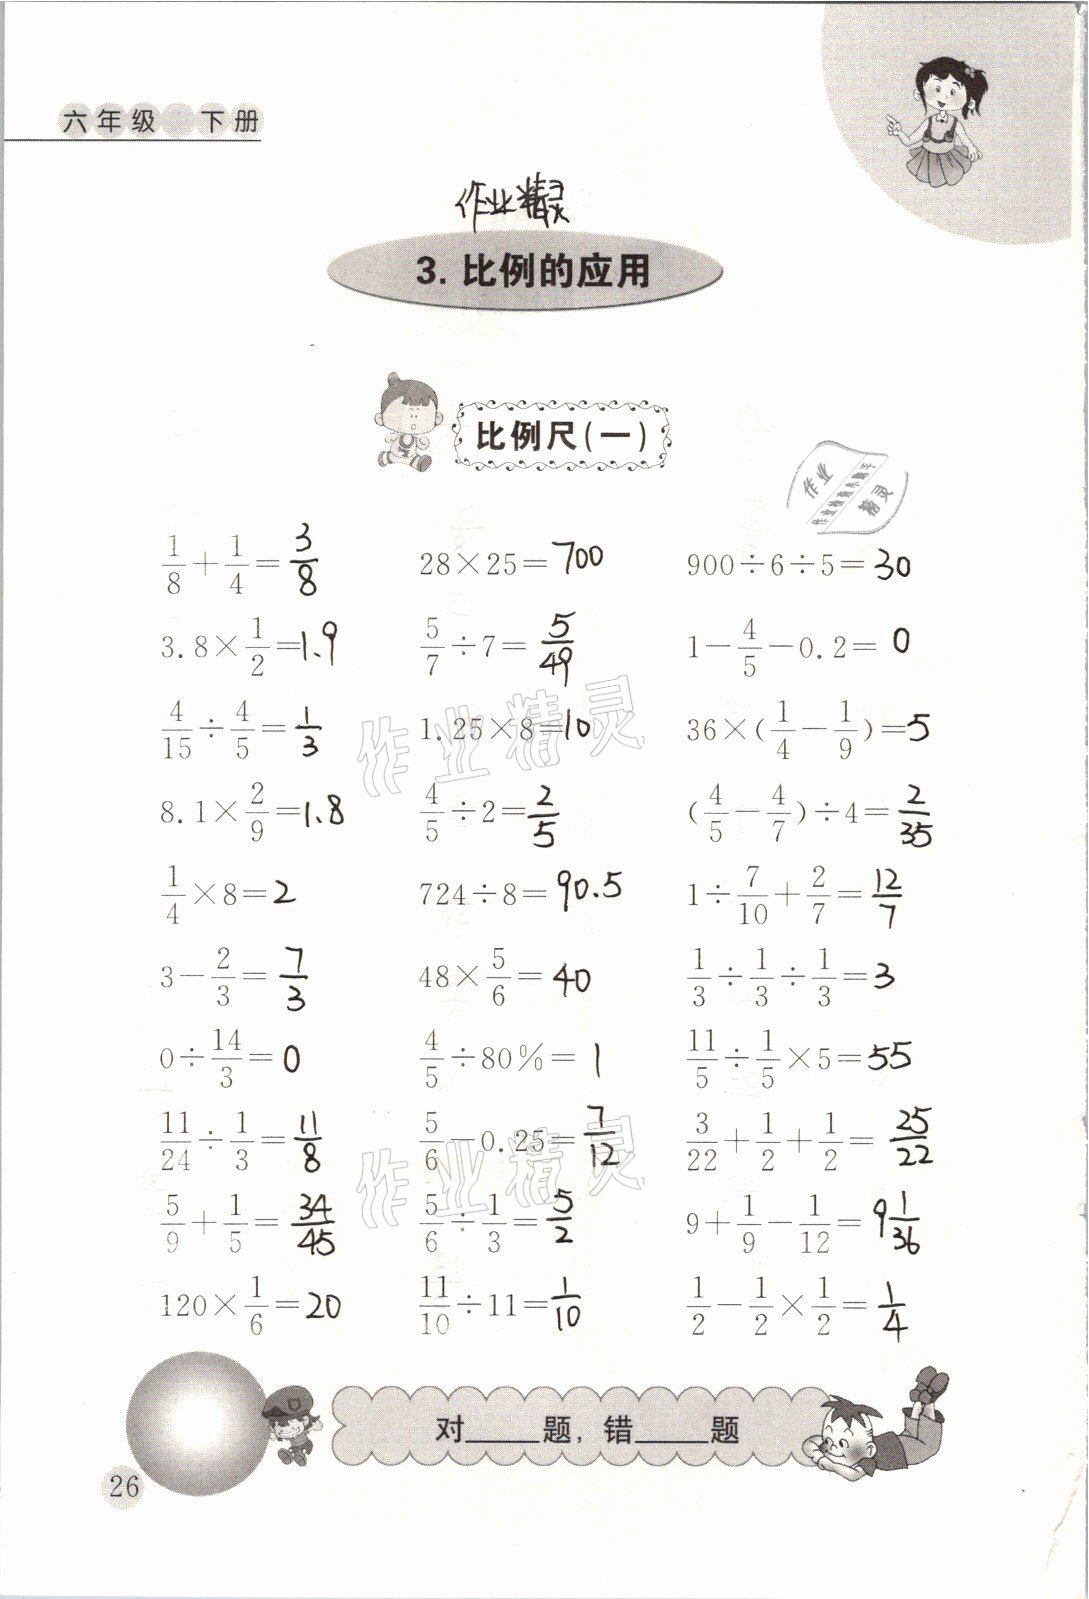 六年级 下册
作业精灵
3. 比例的应用
比例尺(一)
作业
作业检查小助手
精灵
1/8+1/4=3/8 28×25=700 900÷6÷5=30
3.8×1/2=1.9 5/7÷7=5/49 1-4/5-0.2=0
4/15÷4/5=1/3 1.25×8=10 36×(1/4-1/9)=5
8.1×2/9=1.8 4/5÷2=2/5 (4/5-4/7)÷4=2/35
1/4×8=2 724÷8=90.5 1÷7/10+2/7=12/7
3-2/3=7/3 48×5/6=40 1/3÷1/3÷1/3=3
0÷14/3=0 4/5÷80%=1 11/5÷1/5×5=55
11/24÷1/3=11/8 5/6-0.25=7/12 3/22+1/2+1/2=25/22
5/9+1/5=34/45 5/6÷1/3=5/2 9+1/9-1/12=9 1/36
120×1/6=20 11/10÷11=1/10 1/2-1/2×1/2=1/4
作业精灵
作业精灵
对____题，错____题
26